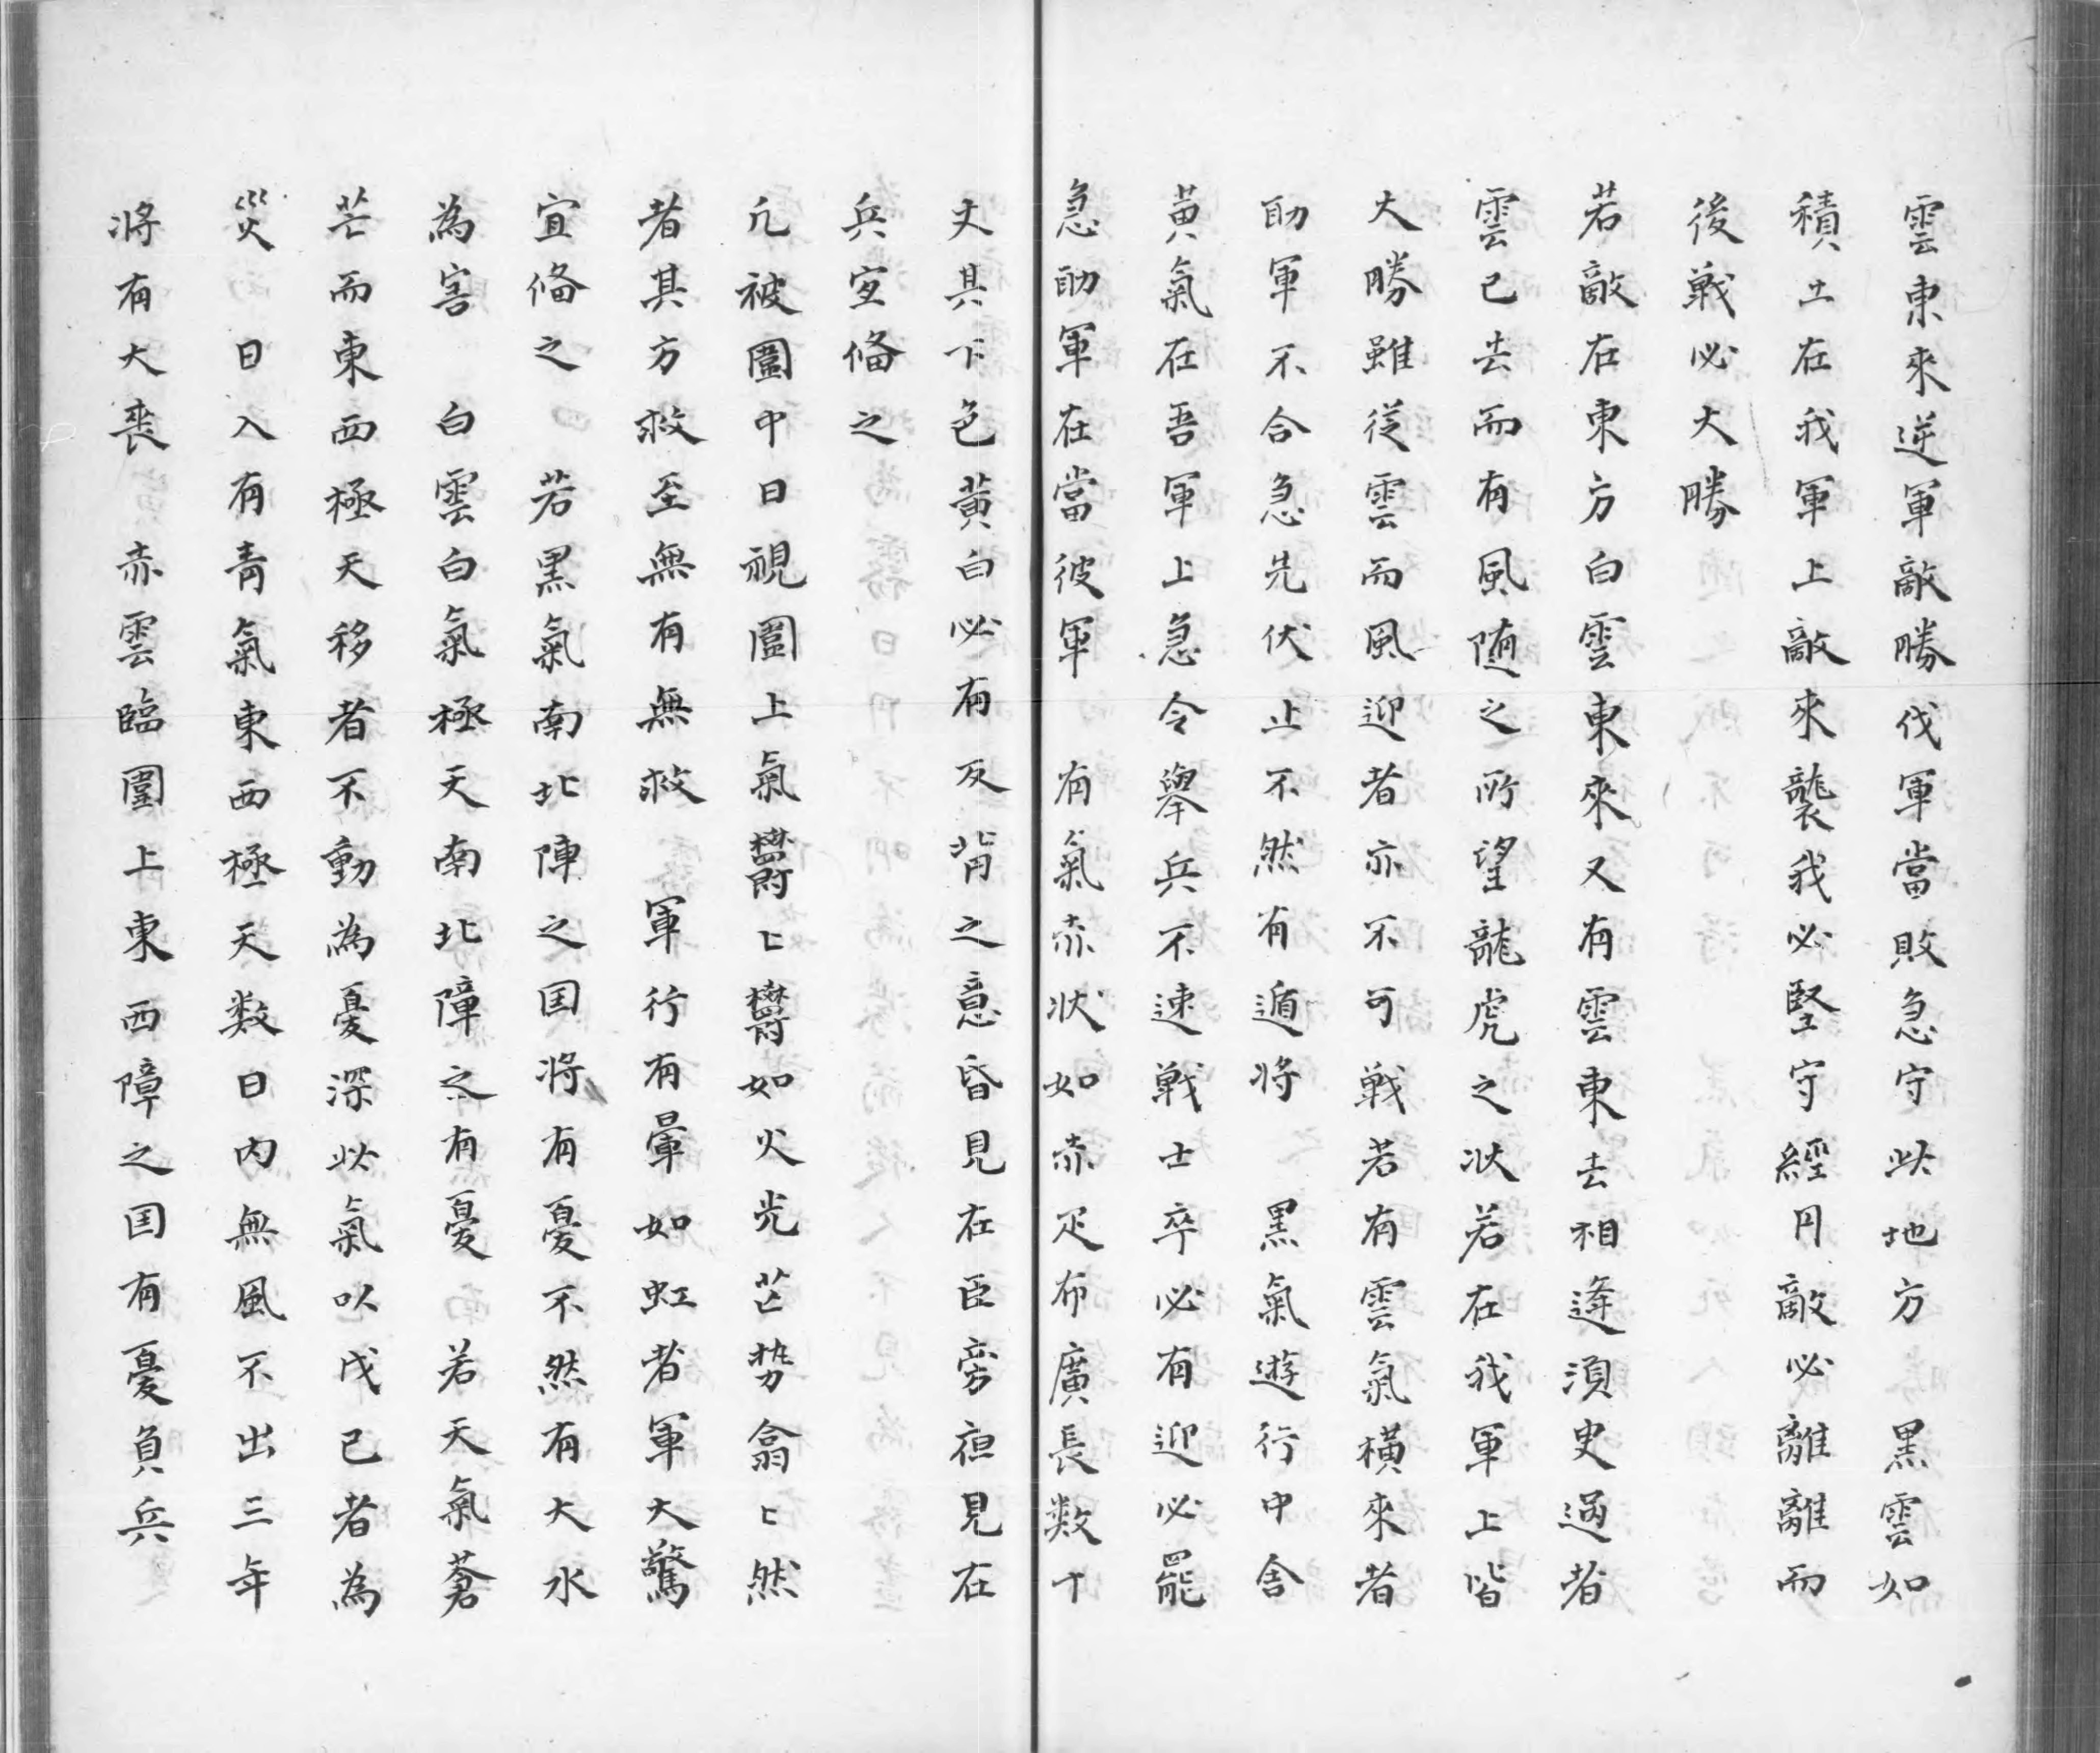 雲東來逆軍敵勝伐軍當敗急守此地方　黒雲如
積土在我軍上敵來襲我必堅守經円敵必離離而
後戦必大勝
若敵在東方白雲東來又有雲東去相逢湏臾過者
雲已去而有風随之所望龍虎之状若在我軍上皆
大勝雖從雲而風迎者亦不可戦若有雲氣横來者
助軍不合急先伏止不然有遁将　黒氣遊行中舎
黄氣在吾軍上急令舉兵不速戦士卒必有迎必罷
急助軍在當彼軍　有氣赤状如赤疋布廣長数十
丈其下色黄白必有反背之意昏見在臣旁夜見在
兵宜俻之
凢被圍中日視圍上氣欝〻欝如火光芒勢翕〻然
者其方救至無有無救　軍行有暈如虹者軍大驚
宜俻之　若黒氣南北陣之国将有憂不然有大水
為害　白雲白氣極天南北障之有憂　若天氣蒼
芒而東西極天移者不動為憂深此氣以戊己者為
災　日入有青氣東西極天数日内無風不出三年
将有大喪　赤雲臨圍上東西障之国有憂負兵